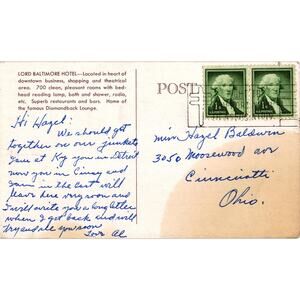 LORD BALTIMORE HOTEL—Located in heart of
downtown business, shopping and theatrical
area. 700 clean, pleasant rooms with bed-
head reading lamp, bath and shower, radio,
etc. Superb restaurants and bars. Home of
the famous Diamondback Lounge.
Hi Hazel:
We should get
together on our junkets
I was at Ky you in Detroit
now you in Cincy and
I am in the East will
leave here very soon and
I will write you a long letter
when I get back and will
try and see you soon
Love Al
POST
Miss Hazel Baldwin
3050 Mosswood av
Cincinatti
Ohio.